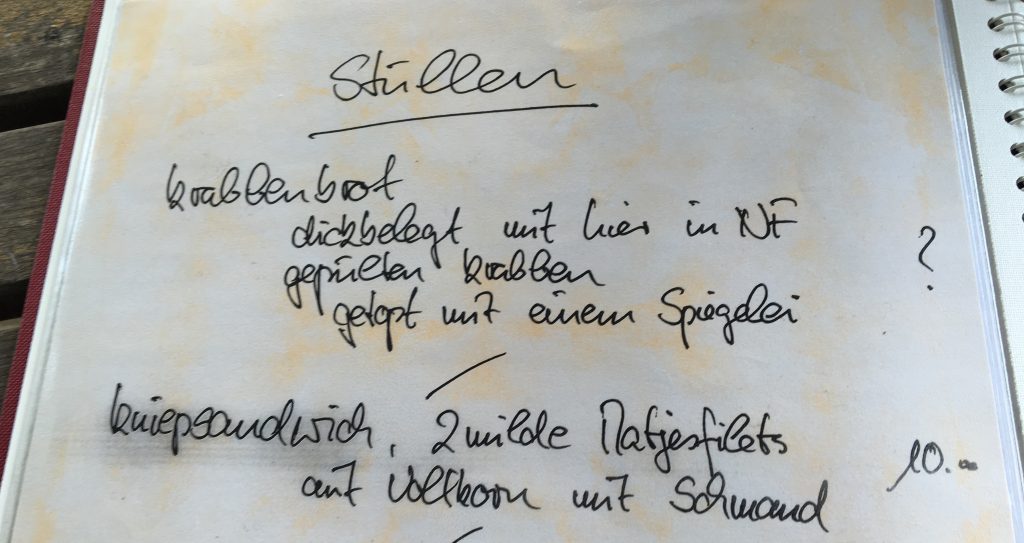 Stullen
Krabbenbrot
dickbelegt mit hier in NF
gepulten Krabben
?
getopt mit einem Spiegelei
Kniepsandwich, 2 milde Matjesfilets
10.-
auf Vollkorn mit Schmand